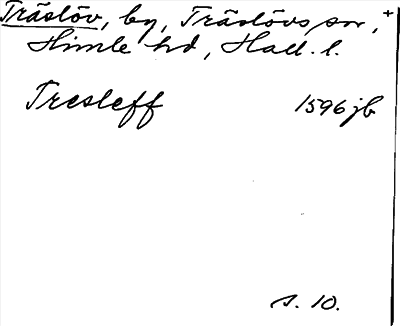 Träslöv, by, Träslövs sn, +
Himle hd, Hall. l.
Tresleff 1596 jb
s. 10.